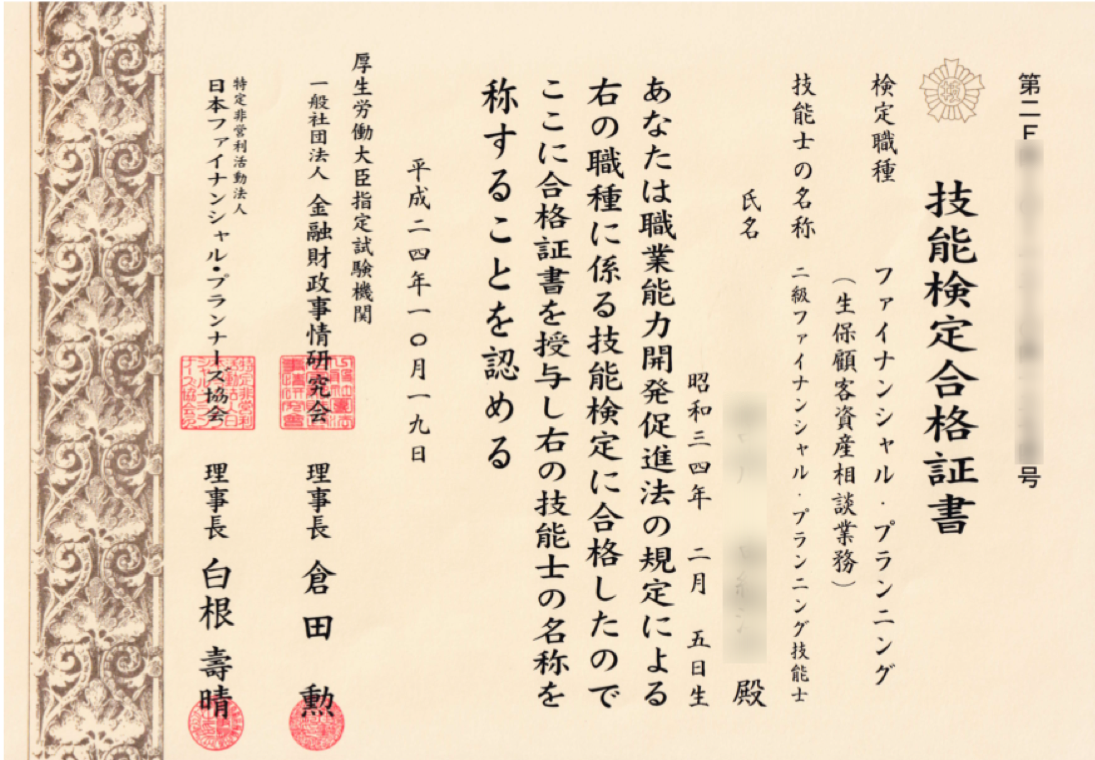 第二F
号
技能検定合格証書
検定職種 ファイナンシャル・プランニング
(生保顧客資産相談業務)
技能士の名称 二級ファイナンシャル・プランニング技能士
氏名 殿
昭和三四年 二月 五日生
あなたは職業能力開発促進法の規定による
右の職種に係る技能検定に合格したので
ここに合格証書を授与し右の技能士の名称を
称することを認める
平成二四年一〇月一九日
厚生労働大臣指定試験機関
一般社団法人 金融財政事情研究会 理事長 倉田 勲
特定非営利活動法人
日本ファイナンシャル・プランナーズ協会 理事長 白根 壽晴